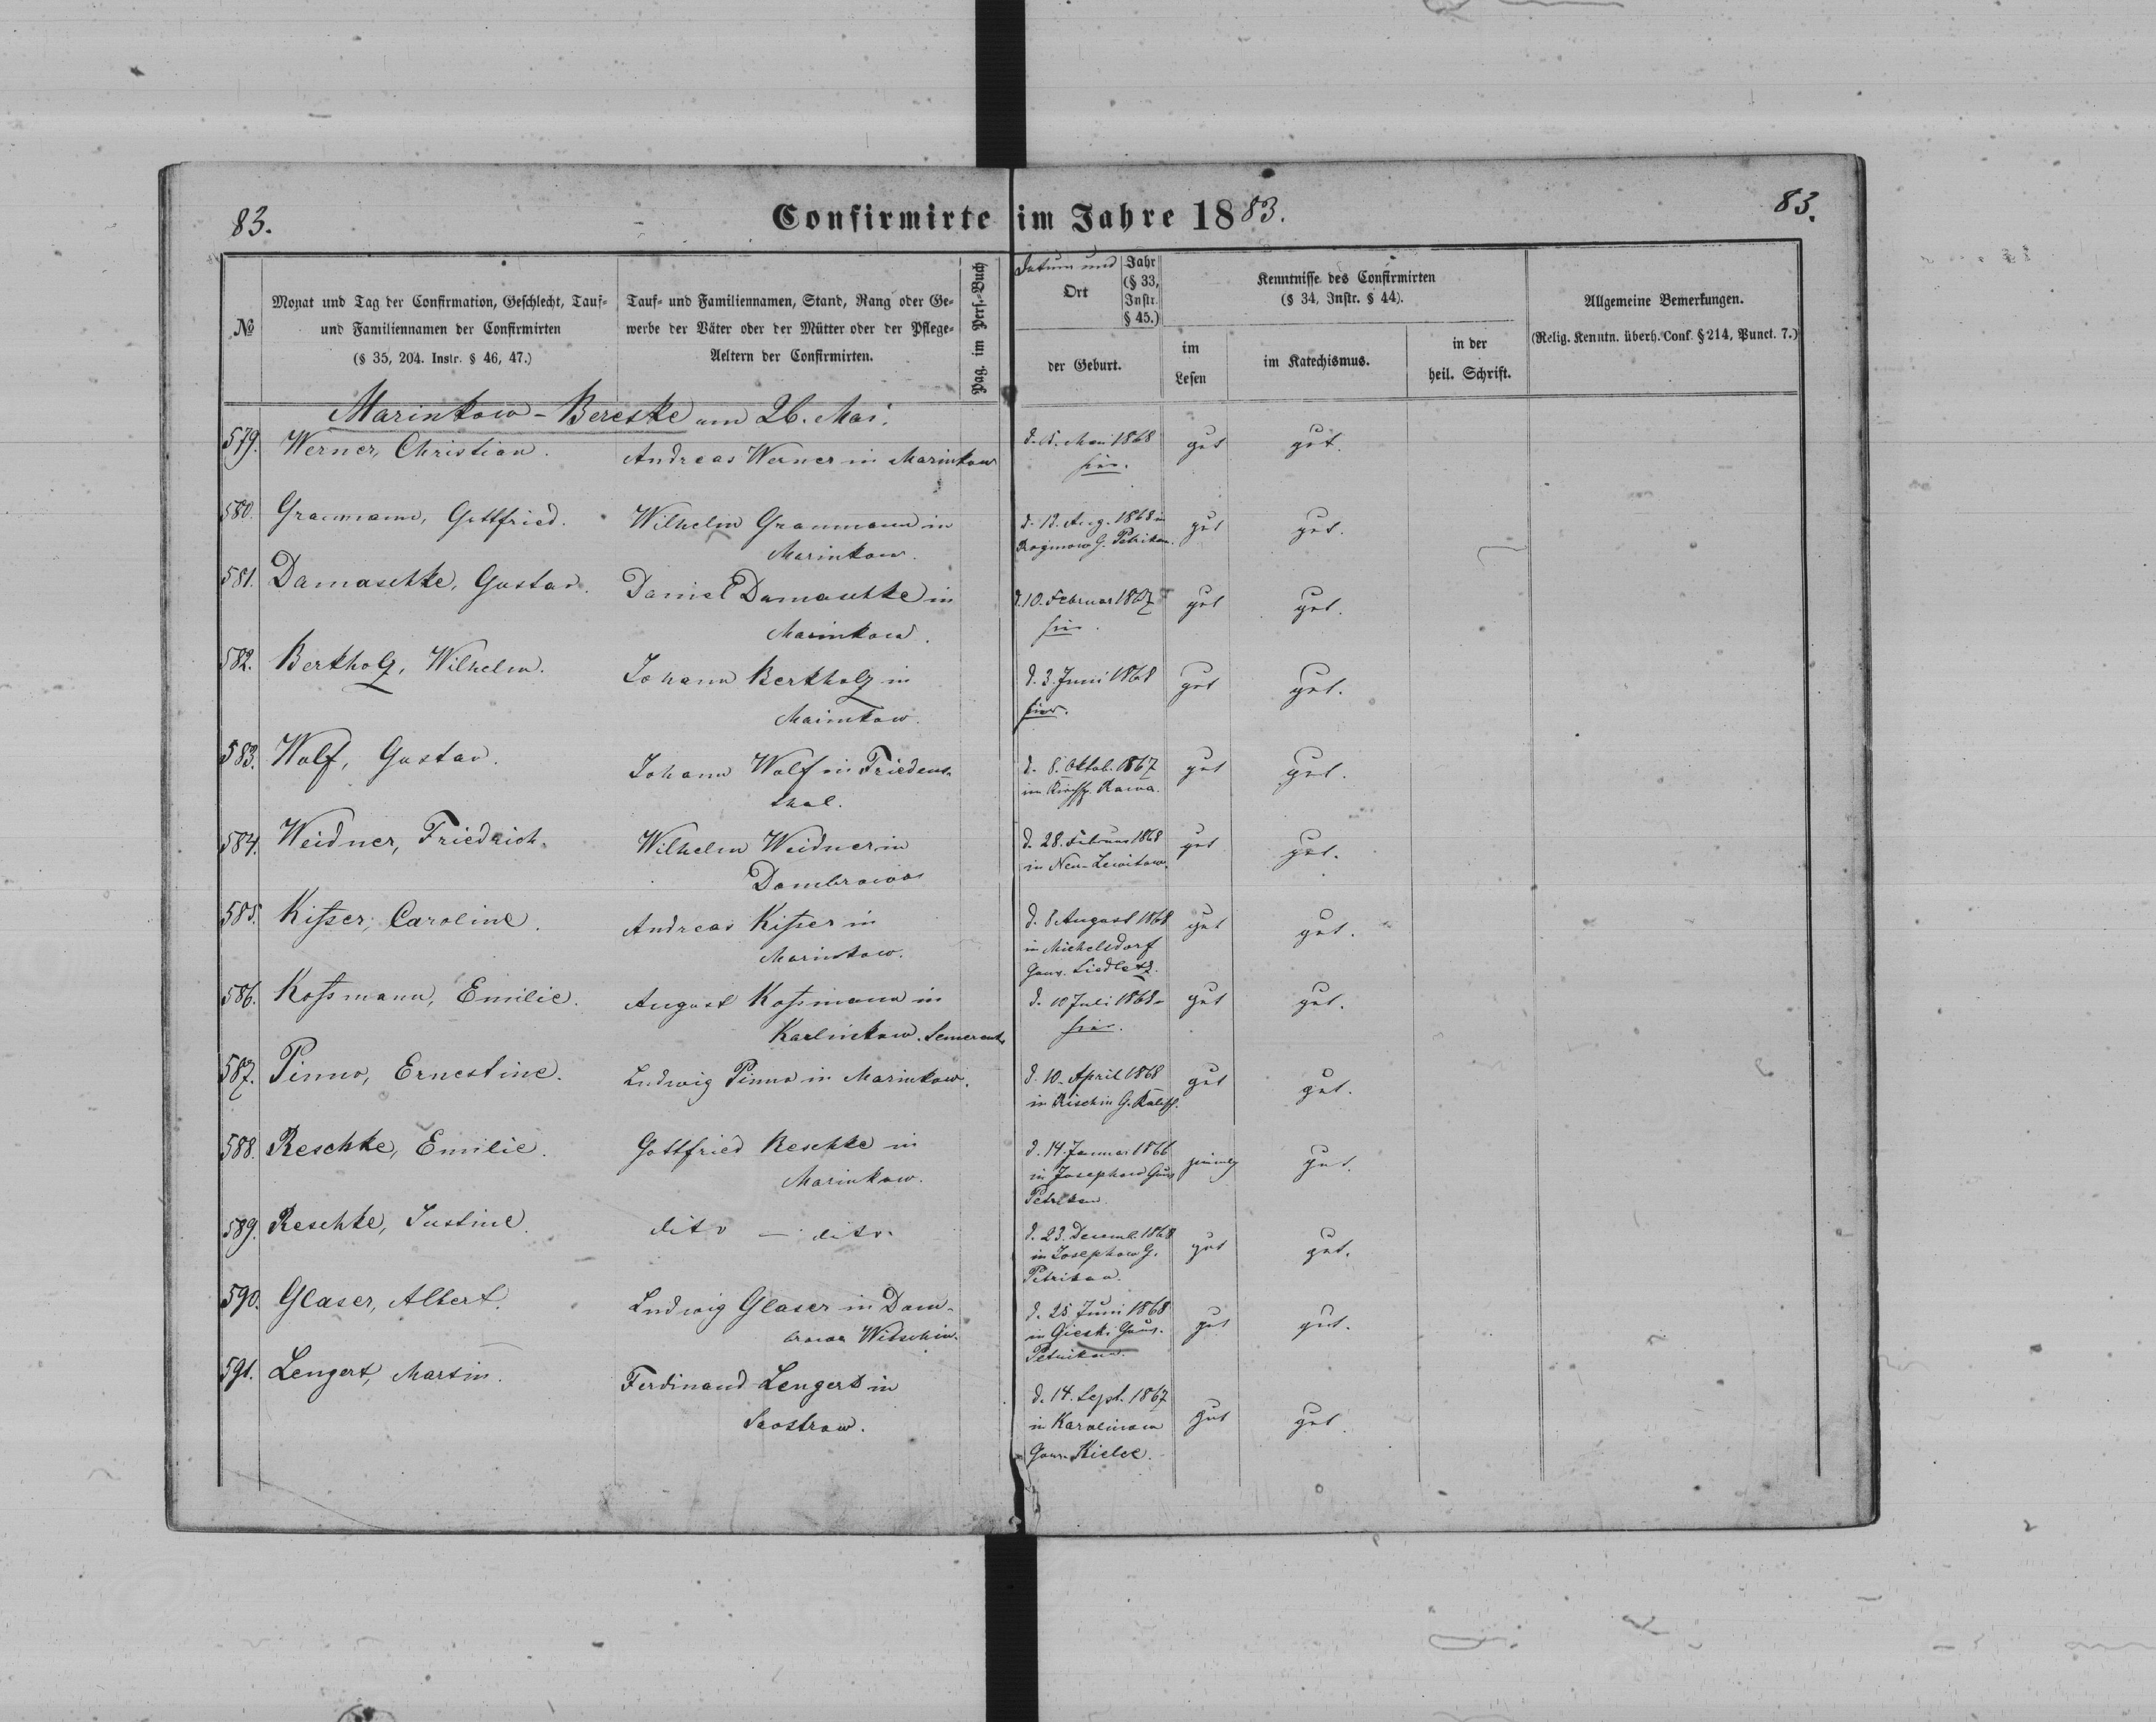 83.
Confirmirte im Jahre 1883.
83.
№
Monat und Tag der Confirmation, Geschlecht, Tauf-
und Familiennamen der Confirmirten
(§ 35, 204. Instr. § 46, 47.)
Tauf- und Familiennamen, Stand, Rang oder Ge-
werbe der Väter oder der Mütter oder der Pflege-
Aeltern der Confirmirten.
Pag. im Pers.-Buch
Datum und
Ort
Jahr
(§ 33,
Instr.
§ 45.)
der Geburt.
Kenntnisse des Confirmirten
(§ 34, Instr. § 44).
im
Lesen
im Katechismus.
in der
heil. Schrift.
Allgemeine Bemerkungen.
(Relig. Kenntn. überh. Conf. § 214, Punct. 7.)
Marinkow-Bereske am 26. Mai.
579. Werner, Christian. Andreas Werner in Marinkow d. 15. Mai 1868 gut gut.
hier.
580. Graumann, Gottfried. Wilhelm Graumann in d. 12. Aug. 1868 in gut gut.
Marinkow. G. Petrikau.
581. Damaschke, Gustav. Daniel Damaschke in d. 10. Februar 1867 gut gut.
Marinkow. hier.
582. Bertholz, Wilhelm. Johann Bertholz in d. 3. Juni 1868 gut gut.
Marinkow. hier.
583. Wolf, Gustav. Johann Wolf in Friedens- d. 8. Oktob. 1867 gut gut.
thal. im Kirchsp. Rawa.
584. Weidner, Friedrich. Wilhelm Weidner in d. 28. Februar 1868 gut gut.
Dombrowa in Neu-Lewitow.
585. Kisser, Caroline. Andreas Kisser in d. 8 August 1868 gut gut.
Marinkow. in Michelsdorf
Gouv. Siedletz.
586. Kossmann, Emilie. August Kossmann in d. 10 Juli 1868 gut gut.
Karlinkow. hier.
587. Pinno, Ernestine. Ludwig Pinno in Marinkow. d. 10. April 1868 gut gut.
in Rischin G. Kalisch.
588. Reschke, Emilie. Gottfried Reschke in d. 14. Januar 1866 gut.
Marinkow. in Josephow Gouv
Petrikau
589. Reschke, Justine. dito — dito. d. 23. Decemb. 1868 gut gut.
in Josephow G.
Petrikau.
590. Glaser, Albert. Ludwig Glaser in Dom- d. 25 Juni 1868 gut gut.
browa Witschin. in Gieski Gouv.
Petrikau.
591. Lengert, Martin. Ferdinand Lengert in d. 14. Sept. 1867 gut gut.
in Karolinow
Gouv. Kielce.